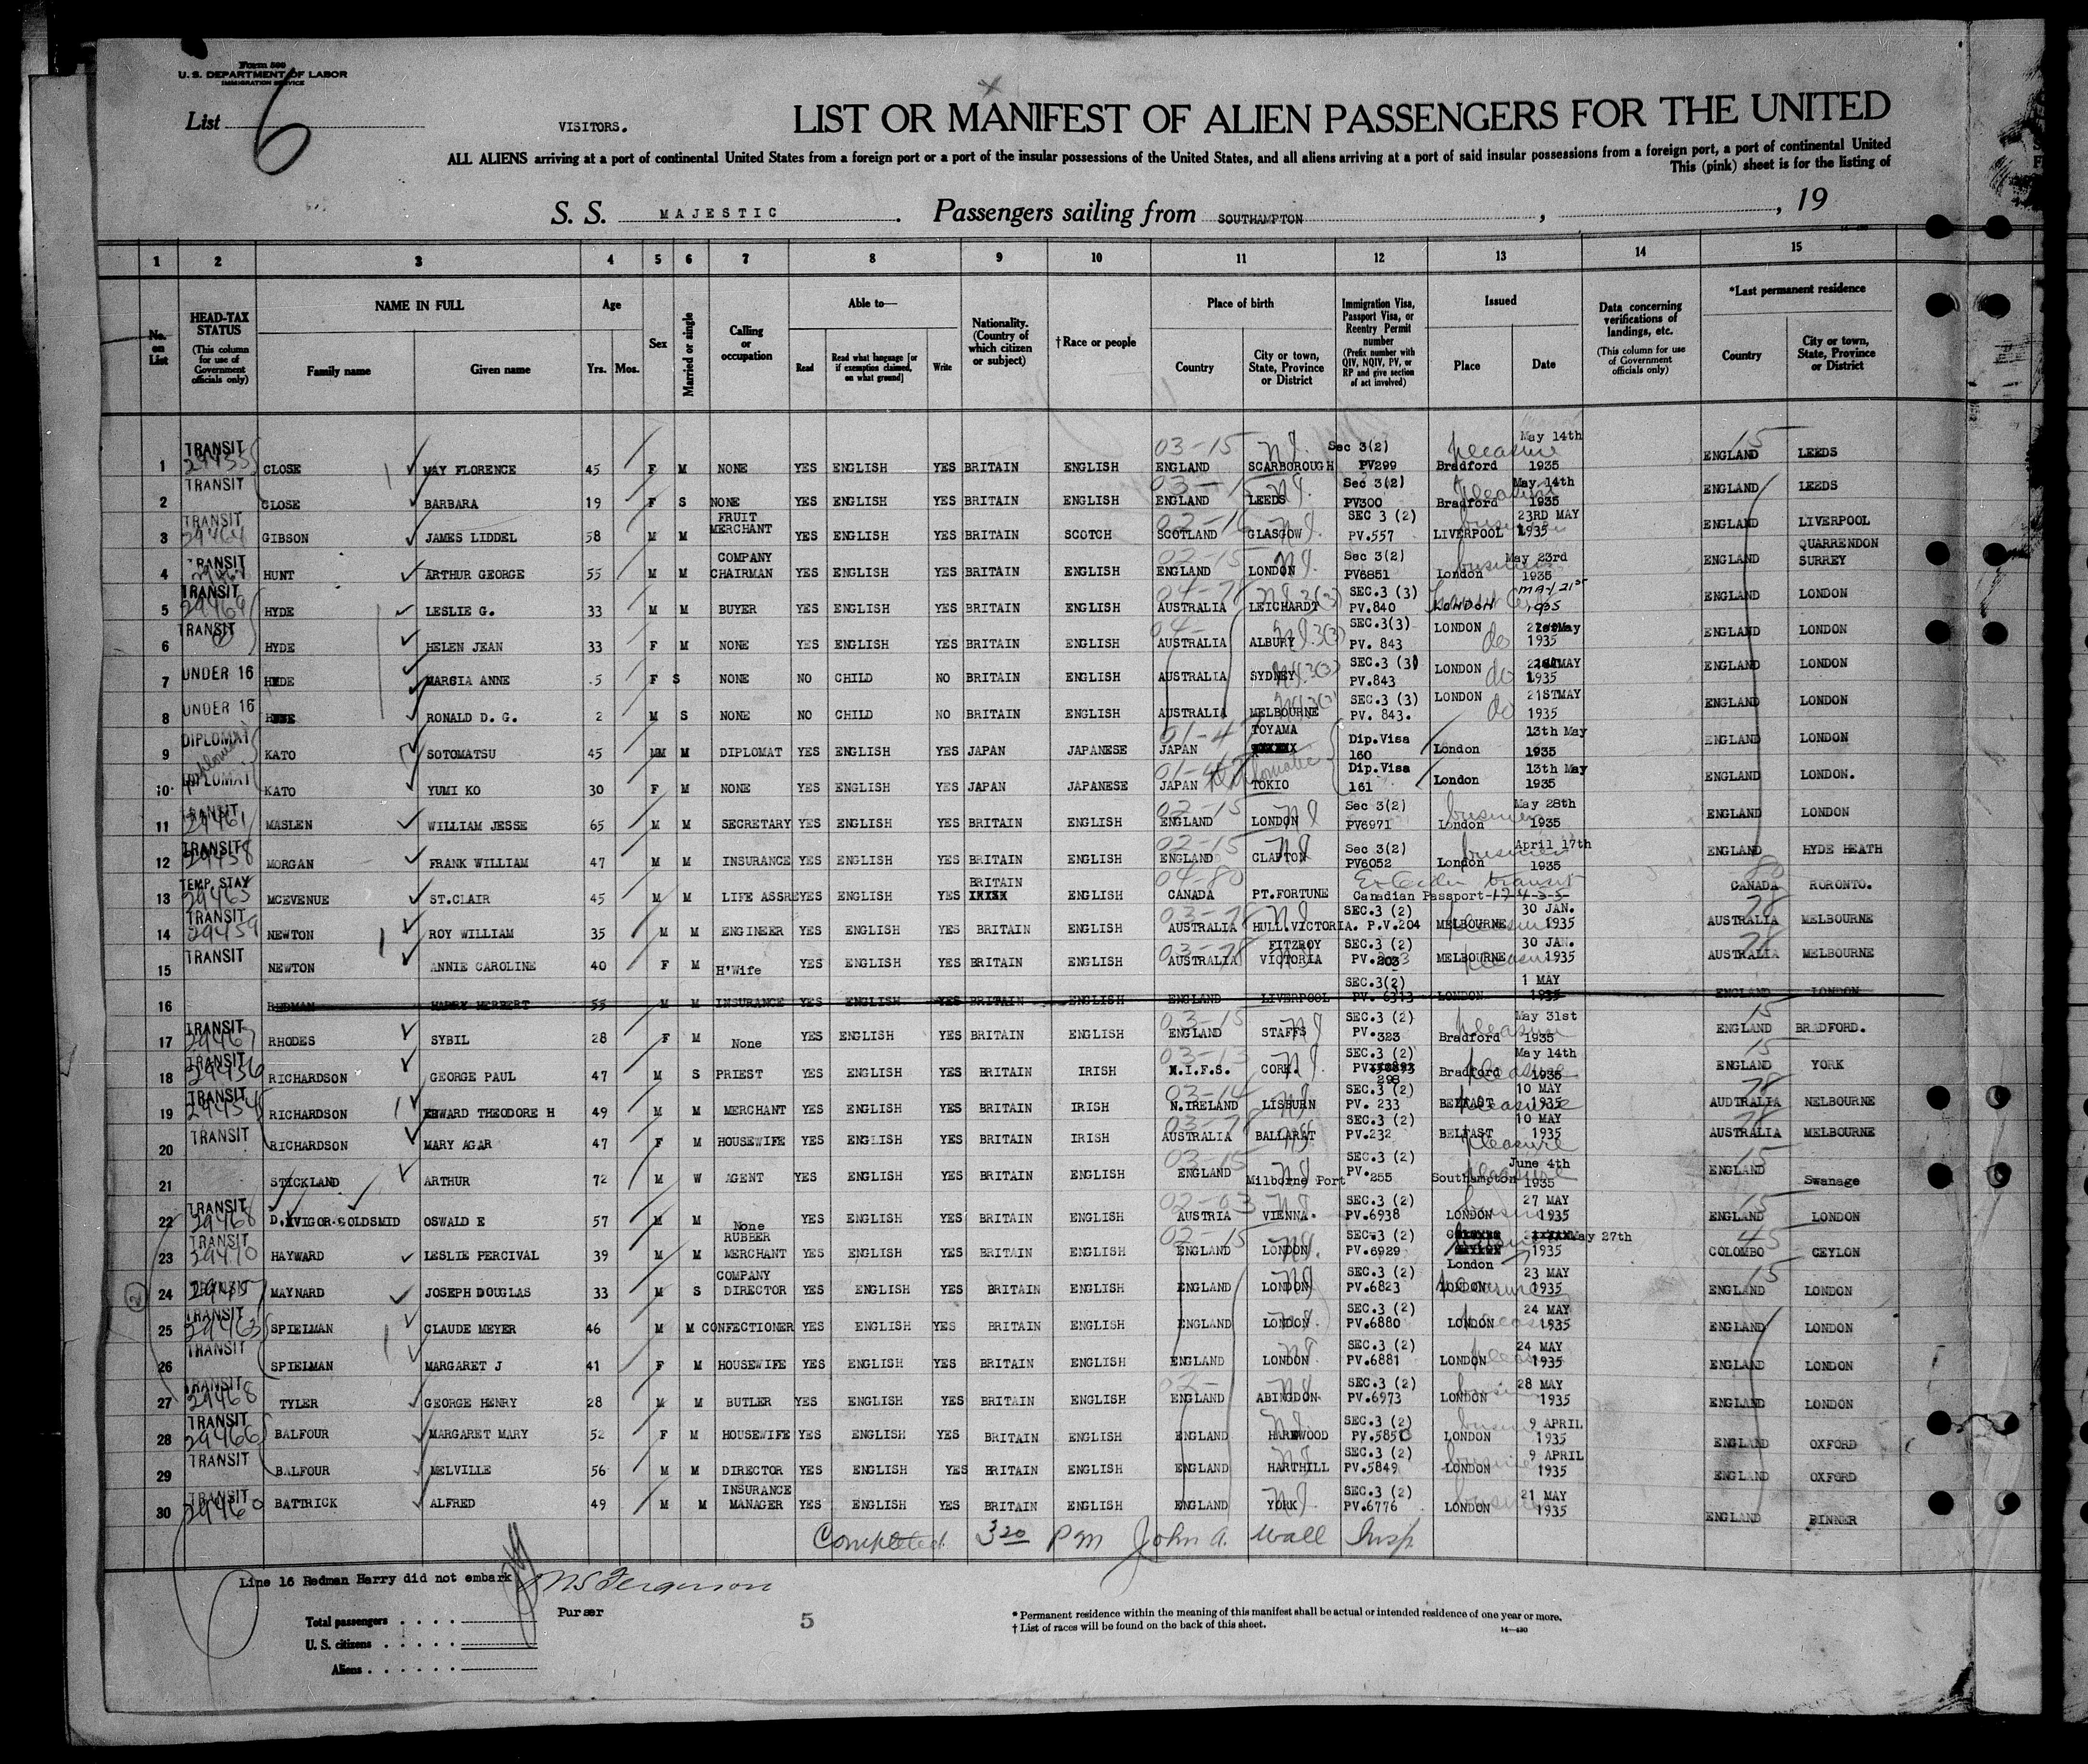 Form 500
U. S. DEPARTMENT OF LABOR
IMMIGRATION SERVICE
List 6
VISITORS.
LIST OR MANIFEST OF ALIEN PASSENGERS FOR THE UNITED
ALL ALIENS arriving at a port of continental United States from a foreign port or a port of the insular possessions of the United States, and all aliens arriving at a port of said insular possessions from a foreign port, a port of continental United
This (pink) sheet is for the listing of
S. S. MAJESTIC. Passengers sailing from SOUTHAMPTON, , 19
1 2 3 4 5 6 7 8 9 10 11 12 13 14 15
No. on List
HEAD-TAX STATUS (This column for use of Government officials only)
NAME IN FULL Family name Given name
Age Yrs. Mos.
Sex
Married or single
Calling or occupation
Able to— Read Read what language [or if exemption claimed, on what ground] Write
Nationality. (Country of which citizen or subject)
†Race or people
Place of birth Country City or town, State, Province or District
Immigration Visa, Passport Visa, or Reentry Permit number (Prefix number with QIV, NQIV, PV, or RP and give section of act involved)
Issued Place Date
Data concerning verifications of landings, etc. (This column for use of Government officials only)
*Last permanent residence Country City or town, State, Province or District
1 TRANSIT CLOSE MAY FLORENCE 45 F M NONE YES ENGLISH YES BRITAIN ENGLISH 03-15 ENGLAND SCARBOROUGH Sec 3(2) PV299 Bradford pleasure May 14th 1935 15 ENGLAND LEEDS
2 TRANSIT CLOSE BARBARA 19 F S NONE YES ENGLISH YES BRITAIN ENGLISH 03-15 ENGLAND LEEDS Sec 3(2) PV300 Bradford pleasure May 14th 1935 ENGLAND LEEDS
3 TRANSIT 29464 GIBSON JAMES LIDDEL 58 M M FRUIT MERCHANT YES ENGLISH YES BRITAIN SCOTCH 02-16 SCOTLAND GLASGOW SEC 3 (2) PV.557 LIVERPOOL business 23RD MAY 1935 ENGLAND LIVERPOOL
4 TRANSIT HUNT ARTHUR GEORGE 55 M M COMPANY CHAIRMAN YES ENGLISH YES BRITAIN ENGLISH 02-15 ENGLAND LONDON Sec 3(2) PV6851 London business May 23rd 1935 ENGLAND QUARRENDON SURREY
5 TRANSIT 29469 HYDE LESLIE G. 33 M M BUYER YES ENGLISH YES BRITAIN ENGLISH 04-78 AUSTRALIA LEICHARDT 3(3) SEC.3 (3) PV.840 LONDON May 21st 1935 ENGLAND LONDON
6 TRANSIT HYDE HELEN JEAN 33 F M NONE YES ENGLISH YES BRITAIN ENGLISH 04- AUSTRALIA ALBURY 3(3) SEC.3(3) PV. 843 LONDON do May 1935 ENGLAND LONDON
7 UNDER 16 HYDE MARCIA ANNE 5 F S NONE NO CHILD NO BRITAIN ENGLISH AUSTRALIA SYDNEY 3(3) SEC.3 (3) PV.843 LONDON do MAY 1935 ENGLAND LONDON
8 UNDER 16 RONALD D. G. 2 M S NONE NO CHILD NO BRITAIN ENGLISH AUSTRALIA MELBOURNE SEC.3 (3) PV. 843. LONDON do 21STMAY 1935 ENGLAND LONDON
9 DIPLOMAT KATO SOTOMATSU 45 M M DIPLOMAT YES ENGLISH YES JAPAN JAPANESE 01-47 JAPAN TOYAMA Dip.Visa 160 London 13th May 1935 ENGLAND LONDON
10 DIPLOMAT KATO YUMI KO 30 F M NONE YES ENGLISH YES JAPAN JAPANESE 01-47 JAPAN TOKIO Diplomatic Dip.Visa 161 London 13th May 1935 ENGLAND LONDON.
11 TRANSIT 29461 MASLEN WILLIAM JESSE 65 M M SECRETARY YES ENGLISH YES BRITAIN ENGLISH 02-15 ENGLAND LONDON Sec 3(2) PV6971 London business May 28th 1935 ENGLAND LONDON
12 TRANSIT 29458 MORGAN FRANK WILLIAM 47 M M INSURANCE YES ENGLISH YES BRITAIN ENGLISH 02-15 ENGLAND CLAPTON Sec 3(2) PV6052 London business April 17th 1935 ENGLAND HYDE HEATH
13 TEMP. STAY 29465 MCEVENUE ST.CLAIR 45 M M LIFE ASSRE YES ENGLISH YES BRITAIN ENGLISH 04-80 CANADA PT.FORTUNE transit Canadian Passport 80 CANADA RORONTO.
14 TRANSIT 29459 NEWTON ROY WILLIAM 35 M M ENGINEER YES ENGLISH YES BRITAIN ENGLISH 03-78 AUSTRALIA HULL.VICTORIA. SEC.3 (2) P.V.204 MELBOURNE pleasure 30 JAN. 1935 78 AUSTRALIA MELBOURNE
15 TRANSIT NEWTON ANNIE CAROLINE 40 F M H'Wife YES ENGLISH YES BRITAIN ENGLISH 03-78 AUSTRALIA FITZROY VICTORIA SEC.3 (2) PV.203 MELBOURNE pleasure 30 JAN. 1935 78 AUSTRALIA MELBOURNE
16 REDMAN HARRY HERBERT 55 M M INSURANCE YES ENGLISH YES BRITAIN ENGLISH ENGLAND LIVERPOOL SEC.3(2) PV. 6313 LONDON 1 MAY 1935 ENGLAND LONDON
17 TRANSIT 29467 RHODES SYBIL 28 F M None YES ENGLISH YES BRITAIN ENGLISH 03-15 ENGLAND STAFFS SEC.3 (2) PV.323 Bradford pleasure May 31st 1935 15 ENGLAND BRADFORD.
18 TRANSIT 29456 RICHARDSON GEORGE PAUL 47 M S PRIEST YES ENGLISH YES BRITAIN IRISH 03-13 I.F.S. CORK. SEC.3 (2) PV 298 Bradford pleasure May 14th 1935 15 ENGLAND YORK
19 TRANSIT 29454 RICHARDSON EDWARD THEODORE H 49 M M MERCHANT YES ENGLISH YES BRITAIN IRISH 03-14 N.IRELAND LISBURN SEC.3 (2) PV. 233 BELFAST pleasure 10 MAY 1935 78 AUDTRALIA NELBOURNE
20 TRANSIT RICHARDSON MARY AGAR 47 F M HOUSEWIFE YES ENGLISH YES BRITAIN IRISH 03-78 AUSTRALIA BALLARAT SEC.3 (2) PV.232 BELFAST pleasure 10 MAY 1935 78 AUSTRALIA MELBOURNE
21 STICKLAND ARTHUR 72 M W AGENT YES ENGLISH YES BRITAIN ENGLISH 03-15 ENGLAND Milborne Port SEC.3 (2) PV.255 Southampton pleasure June 4th 1935 15 ENGLAND Swanage
22 TRANSIT 29468 D.AVIGOR-GOLDSMID OSWALD E 57 M M None YES ENGLISH YES BRITAIN ENGLISH 02-03 AUSTRIA VIENNA. SEC.3 (2) PV.6938 LONDON business 27 MAY 1935 15 ENGLAND LONDON
23 TRANSIT 29470 HAYWARD LESLIE PERCIVAL 39 M M RUBBER MERCHANT YES ENGLISH YES BRITAIN ENGLISH 02-15 ENGLAND LONDON SEC.3 (2) PV.6929 London May 27th 1935 45 COLOMBO CEYLON
24 TRANSIT 29457 MAYNARD JOSEPH DOUGLAS 33 M S COMPANY DIRECTOR YES ENGLISH YES BRITAIN ENGLISH ENGLAND LONDON SEC.3 (2) PV.6823 LONDON pleasure 23 MAY 1935 15 ENGLAND LONDON
25 TRANSIT 29463 SPIELMAN CLAUDE MEYER 46 M M CONFECTIONER YES ENGLISH YES BRITAIN ENGLISH ENGLAND LONDON. SEC.3 (2) PV.6880 LONDON pleasure 24 MAY 1935 ENGLAND LONDON
26 TRANSIT SPIELMAN MARGARET J 41 F M HOUSEWIFE YES ENGLISH YES BRITAIN ENGLISH ENGLAND LONDON SEC.3 (2) PV.6881 LONDON pleasure 24 MAY 1935 ENGLAND LONDON
27 TRANSIT 29468 TYLER GEORGE HENRY 28 M M BUTLER YES ENGLISH YES BRITAIN ENGLISH 02- ENGLAND ABINGDON. SEC.3 (2) PV.6973 LONDON business 28 MAY 1935 ENGLAND LONDON
28 TRANSIT 29466 BALFOUR MARGARET MARY 52 F M HOUSEWIFE YES ENGLISH YES BRITAIN ENGLISH ENGLAND HAREWOOD SEC.3 (2) PV.5850 LONDON business 9 APRIL 1935 ENGLAND OXFORD
29 TRANSIT BALFOUR MELVILLE 56 M M DIRECTOR YES ENGLISH YES BRITAIN ENGLISH ENGLAND HARTHILL SEC.3 (2) PV.5849 LONDON business 9 APRIL 1935 ENGLAND OXFORD
30 TRANSIT 29460 BATTRICK ALFRED 49 M M INSURANCE MANAGER YES ENGLISH YES BRITAIN ENGLISH ENGLAND YORK SEC.3 (2) PV.6776 LONDON business 21 MAY 1935 ENGLAND BINNER
Completed 3 20 PM John A. Wall Insp
Line 16 Redman Harry did not embark
Ferguson
Purser
Total passengers
U. S. citizens
Aliens
5
* Permanent residence within the meaning of this manifest shall be actual or intended residence of one year or more.
† List of races will be found on the back of this sheet.
14—430